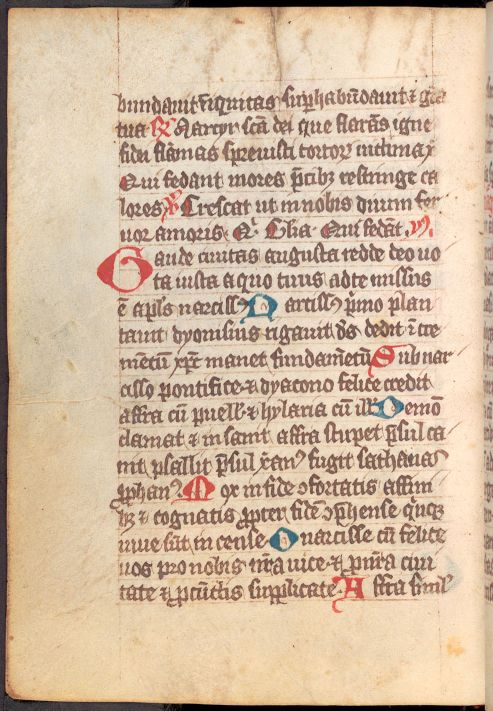 bundauit iniquitas superhabundauit & gra
tua R Martyr sca dei que flagras igne
fidei flamas spreuisti tortorum inclina
Qui sedant mores pctibus restringe ca
lores V Crescat ut in nobis diuini fer
uor amoris. Qui sedant
Gaude ciuitas augusta redde deo uo
ta iusta a quo tuus ad te missus
e apls narcissus Narcissus primo plan
tauit dyonisius rigauit ds dedit incre
mentu xpc manet fundametu Sub nar
cisso pontifice & dyacono felice credit
affra cu puell & hylaria cu ill Demo
clamat & insanit affra stupet psul ca
nit psallit psul xpian fugit sathanas
prophan Mox in fide confortatis affini
bus & cognatis propter fide
uiue sut incense O narcisse cu felice
uos pro nobis nra uice & pro nra ciui
tate & pro cuctis supplicate. Affra simul